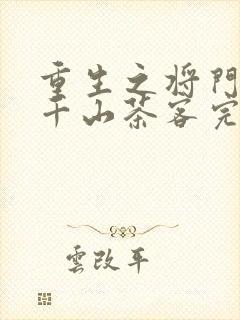 重生之将門
千山茶客完
雲改平